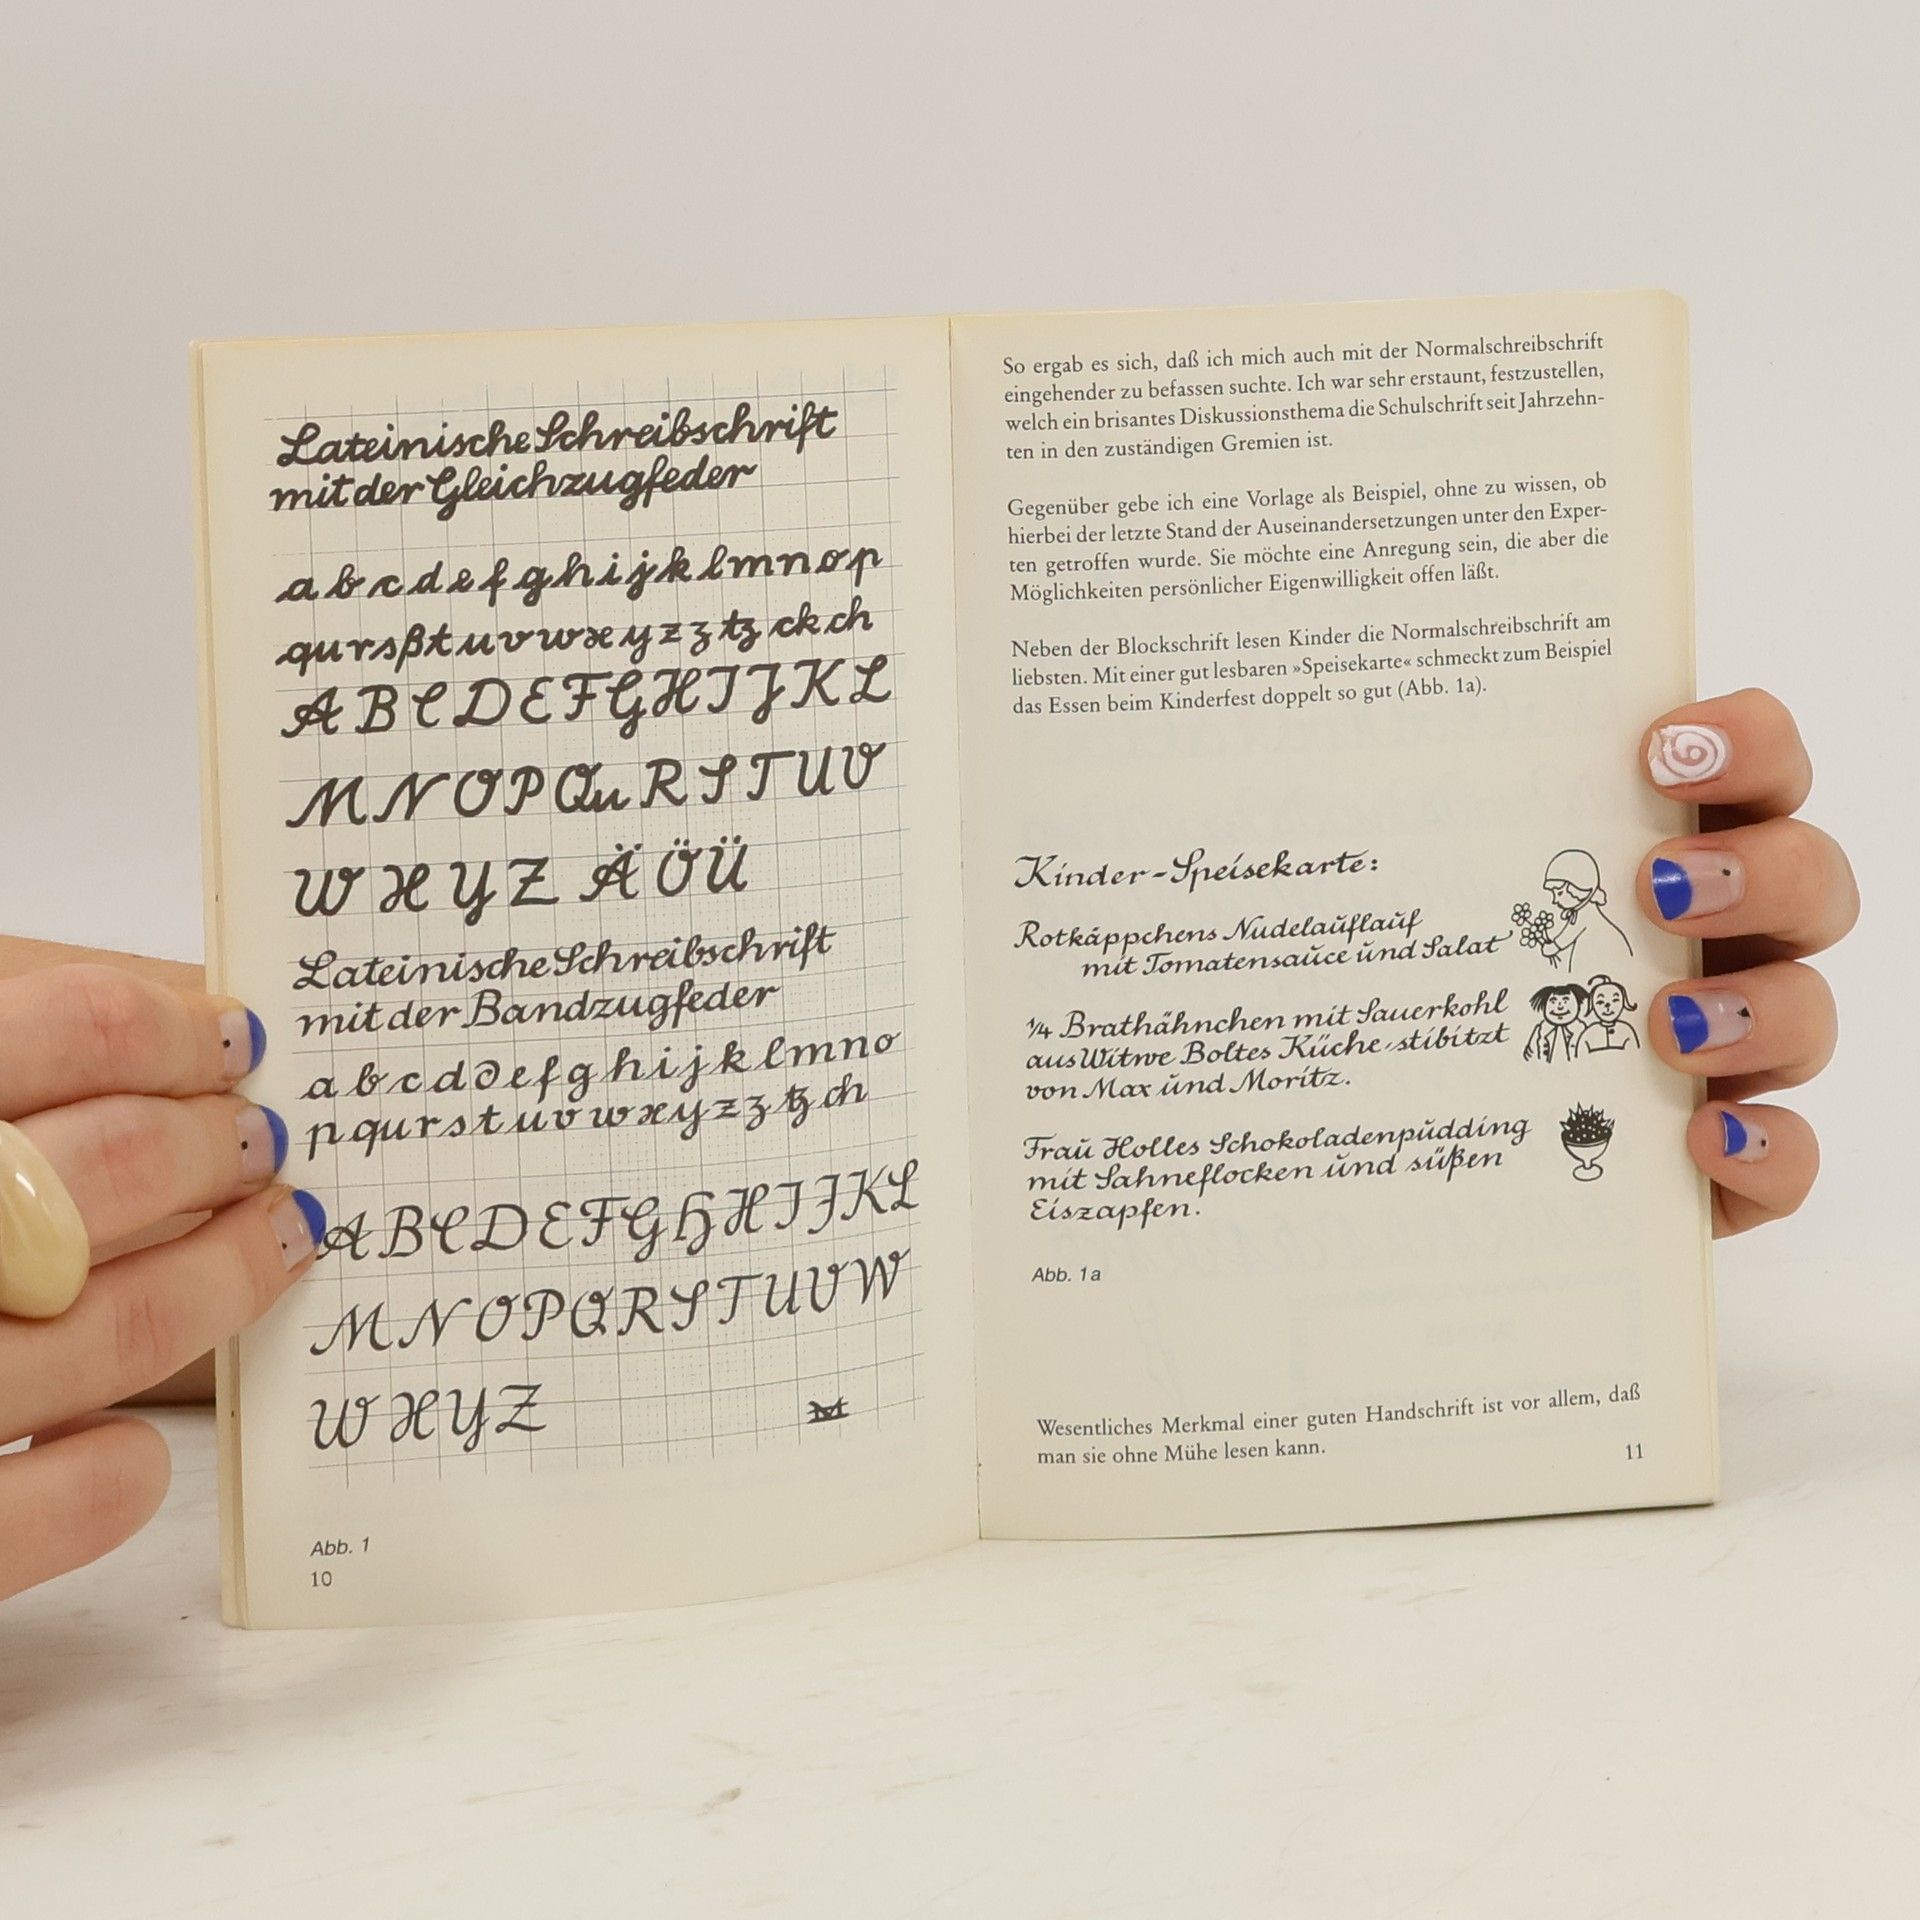 Lateinische Schreibschrift
mit der Gleichzugfeder
a b c d e f g h i j k l m n o p
qu r s ß t u v w x y z ʒ tz ck ch
A B C D E F G H I J K L
M N O P Qu R S T U V
W X Y Z Ä Ö Ü
Lateinische Schreibschrift
mit der Bandzugfeder
a b c d ∂ e f g h i j k l m n o
p qu r s t u v w x y z ʒ tz ch
A B C D E F G H H I J K L
M N O P Q R S T U V W
W X Y Z
Abb. 1
10
So ergab es sich, daß ich mich auch mit der Normalschreibschrift
eingehender zu befassen suchte. Ich war sehr erstaunt, festzustellen,
welch ein brisantes Diskussionsthema die Schulschrift seit Jahrzehn-
ten in den zuständigen Gremien ist.
Gegenüber gebe ich eine Vorlage als Beispiel, ohne zu wissen, ob
hierbei der letzte Stand der Auseinandersetzungen unter den Exper-
ten getroffen wurde. Sie möchte eine Anregung sein, die aber die
Möglichkeiten persönlicher Eigenwilligkeit offen läßt.
Neben der Blockschrift lesen Kinder die Normalschreibschrift am
liebsten. Mit einer gut lesbaren »Speisekarte« schmeckt zum Beispiel
das Essen beim Kinderfest doppelt so gut (Abb. 1a).
Kinder-Speisekarte:
Rotkäppchens Nudelauflauf
mit Tomatensauce und Salat
1/4 Brathähnchen mit Sauerkohl
aus Witwe Boltes Küche-stibitzt
von Max und Moritz.
Frau Holles Schokoladenpudding
mit Sahneflocken und süßen
Eiszapfen.
Abb. 1a
Wesentliches Merkmal einer guten Handschrift ist vor allem, daß
man sie ohne Mühe lesen kann.
11